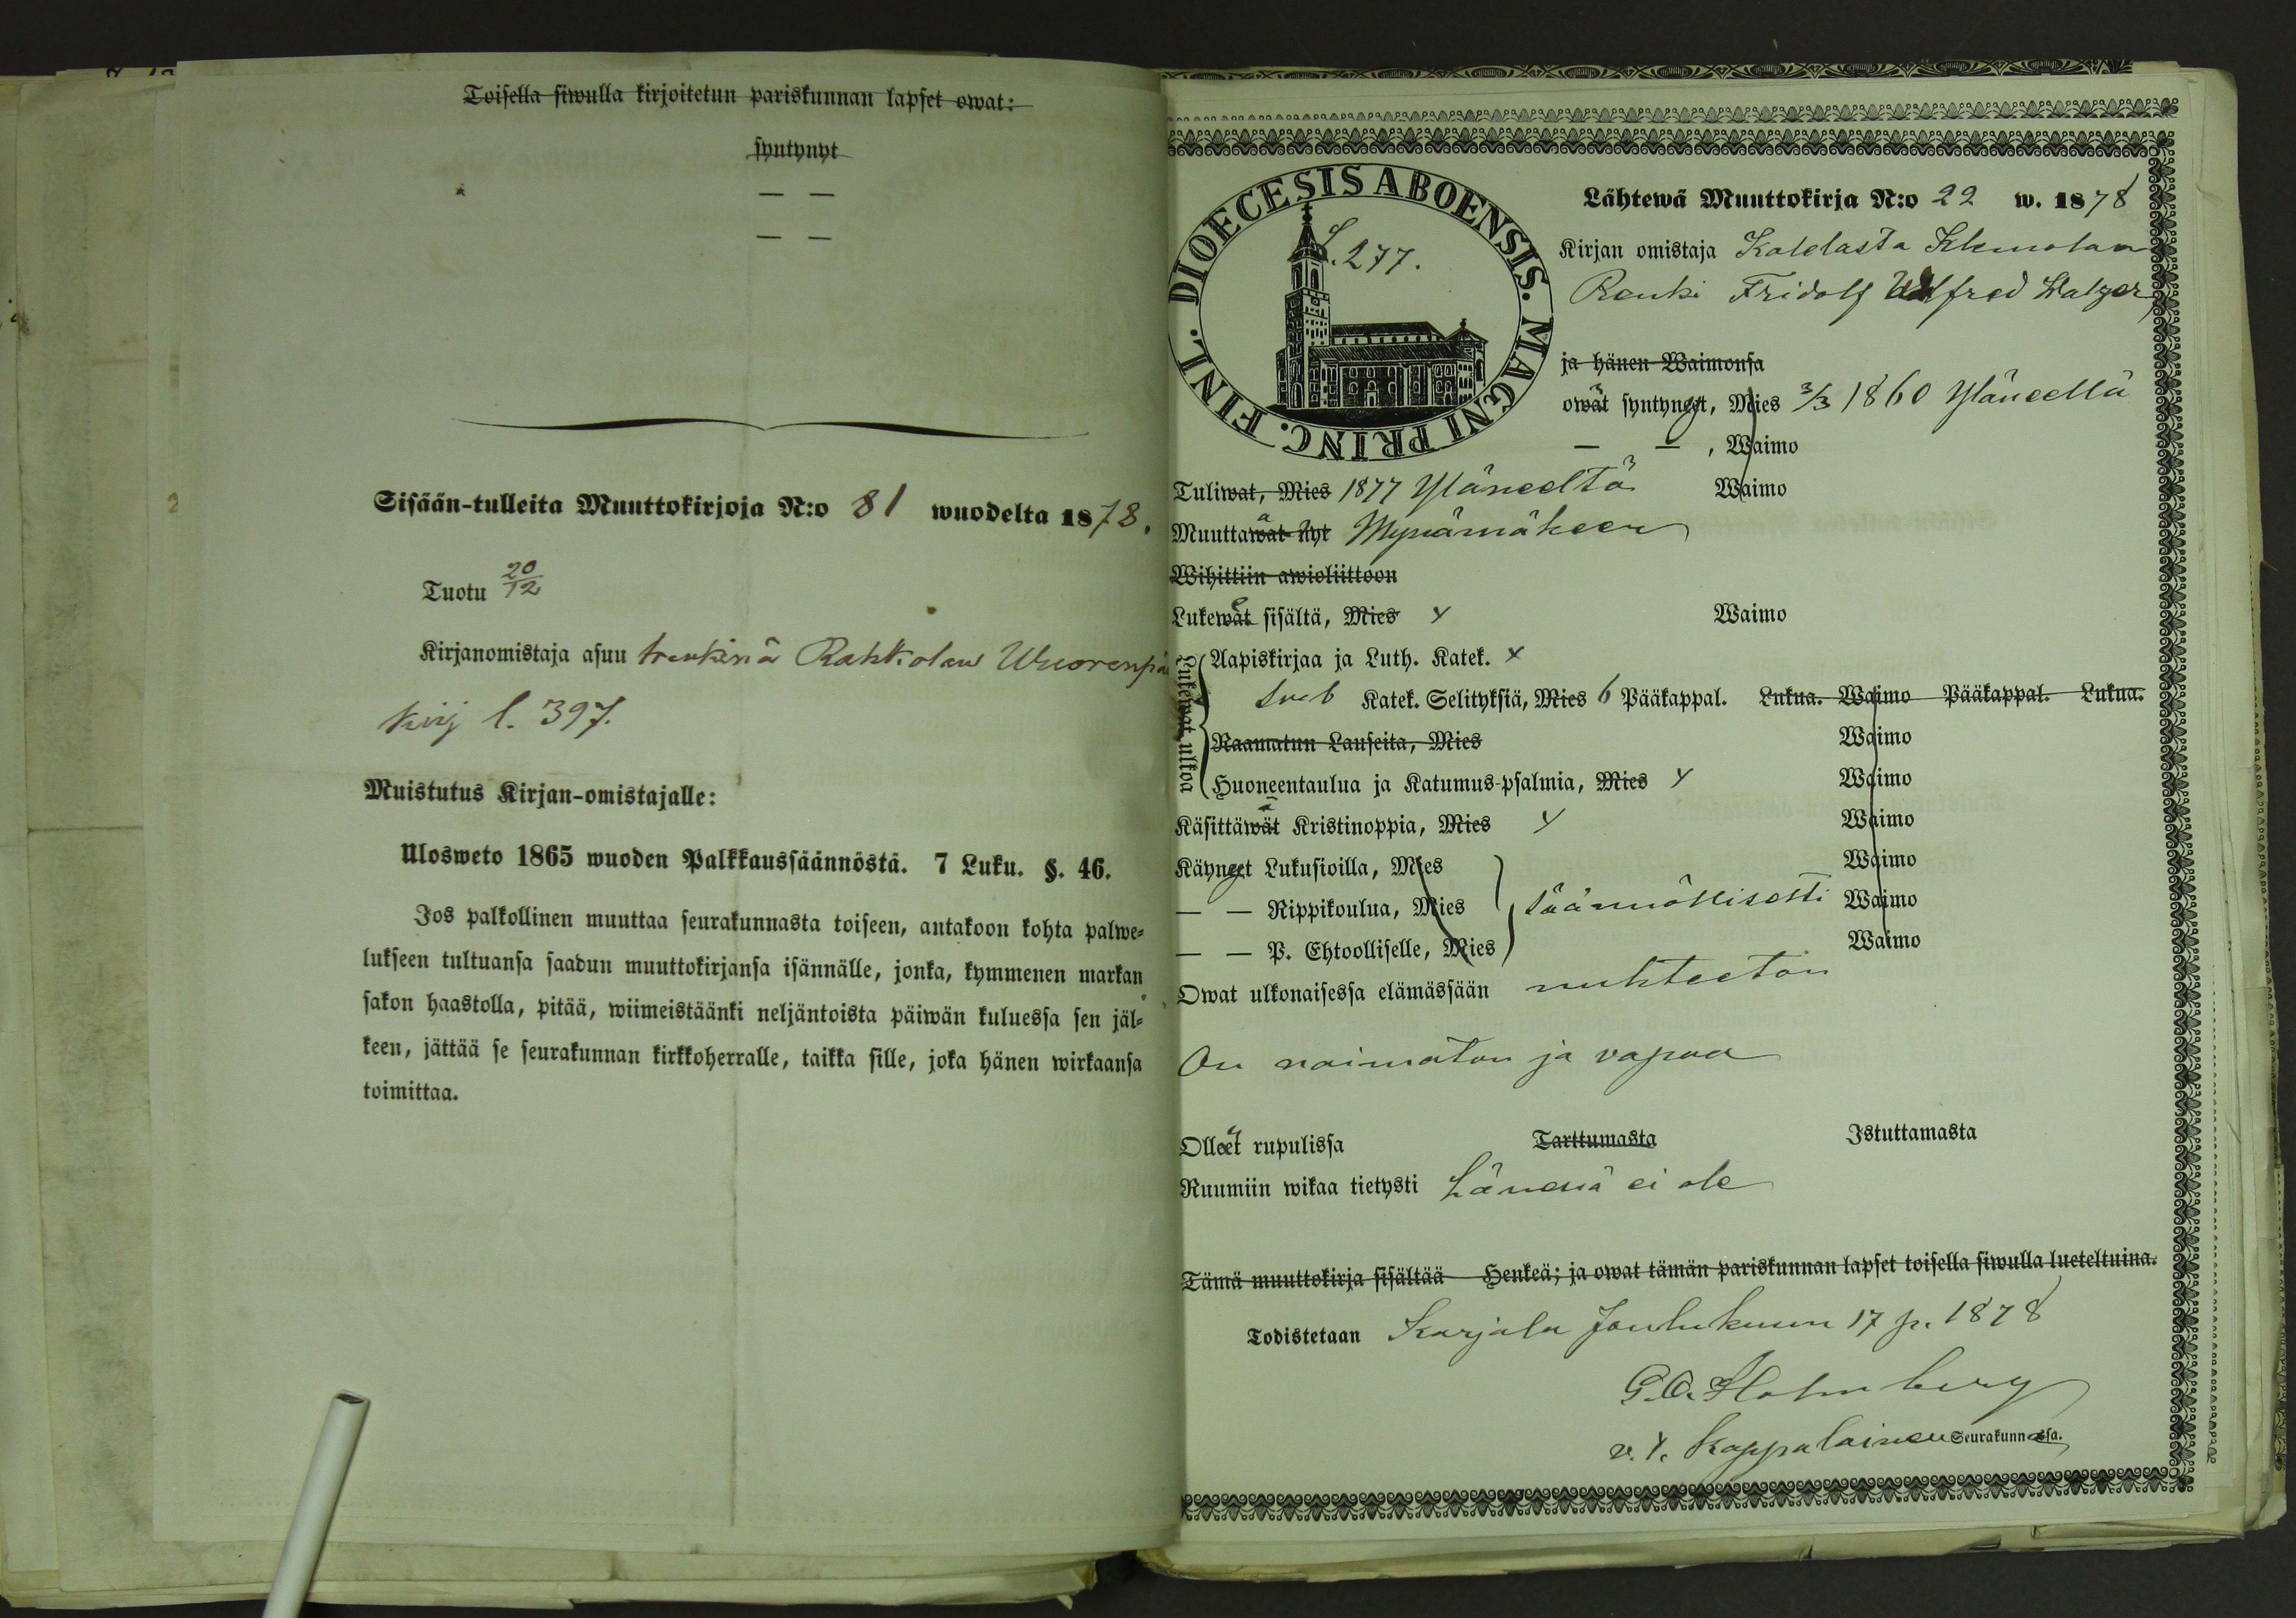 Toisella siwulla kirjoitetun pariskunnan lapset owat:
syntynyt
— —
— —
Sisään-tulleita Muuttokirjoja N:o 81 wuodelta 1878.
Tuotu 20/12
Kirjanomistaja asuu trenkinä Rahkolan Wuorenpää
kirj l. 397.
Muistutus Kirjan-omistajalle:
Ulosweto 1865 wuoden Palkkaussäännöstä. 7 Luku. §. 46.
Jos palkollinen muuttaa seurakunnasta toiseen, antakoon kohta palwe-
lukseen tultuansa saadun muuttokirjansa isännälle, jonka, kymmenen markan
sakon haastolla, pitää, wiimeistäänki neljäntoista päiwän kuluessa sen jäl-
keen, jättää se seurakunnan kirkkoherralle, taikka sille, joka hänen wirkaansa
toimittaa.
DIOECESIS ABOENSIS. MAGNI PRINC. FINL.
S. 277.
Lähtewä Muuttokirja N:o 22 w. 1878
Kirjan omistaja
Renki Fridolf
ja hänen Waimonsa
owat syntynyt, Mies 3/3 1860 Yläneellä
— — , Waimo
Tuliwat, Mies 1877 Yläneeltä Waimo
Muuttawat nyt Mynämäkeen
Wihittiin awioliittoon
Lukewat sisältä, Mies Waimo
Lukewat ulkoa
Aapiskirjaa ja Luth. Katek. x
Sveb Katek. Selityksiä, Mies 6 Pääkappal. Lukua. Waimo Pääkappal. Lukua.
Raamatun Lauseita, Mies Waimo
Huoneentaulua ja Katumus-psalmia, Mies Waimo
Käsittäwät Kristinoppia, Mies Waimo
Käyneet Lukusioilla, Mies Waimo
— — Rippikoulua, Mies säännöllisesti Waimo
— — P. Ehtoolliselle, Mies Waimo
Owat ulkonaisessa elämässään nuhteeton
On naimaton ja vapaa
Olleet rupulissa Tarttumasta Istuttamasta
Ruumiin wikaa tietysti hänessä ei ole
Tämä muuttokirja sisältää Henkeä; ja owat tämän pariskunnan lapset toisella siwulla lueteltuina.
Todistetaan Karjala Joulukuun 17 p. 1878
G. O. Holmberg
v. t. Kappalainen Seurakunnassa.